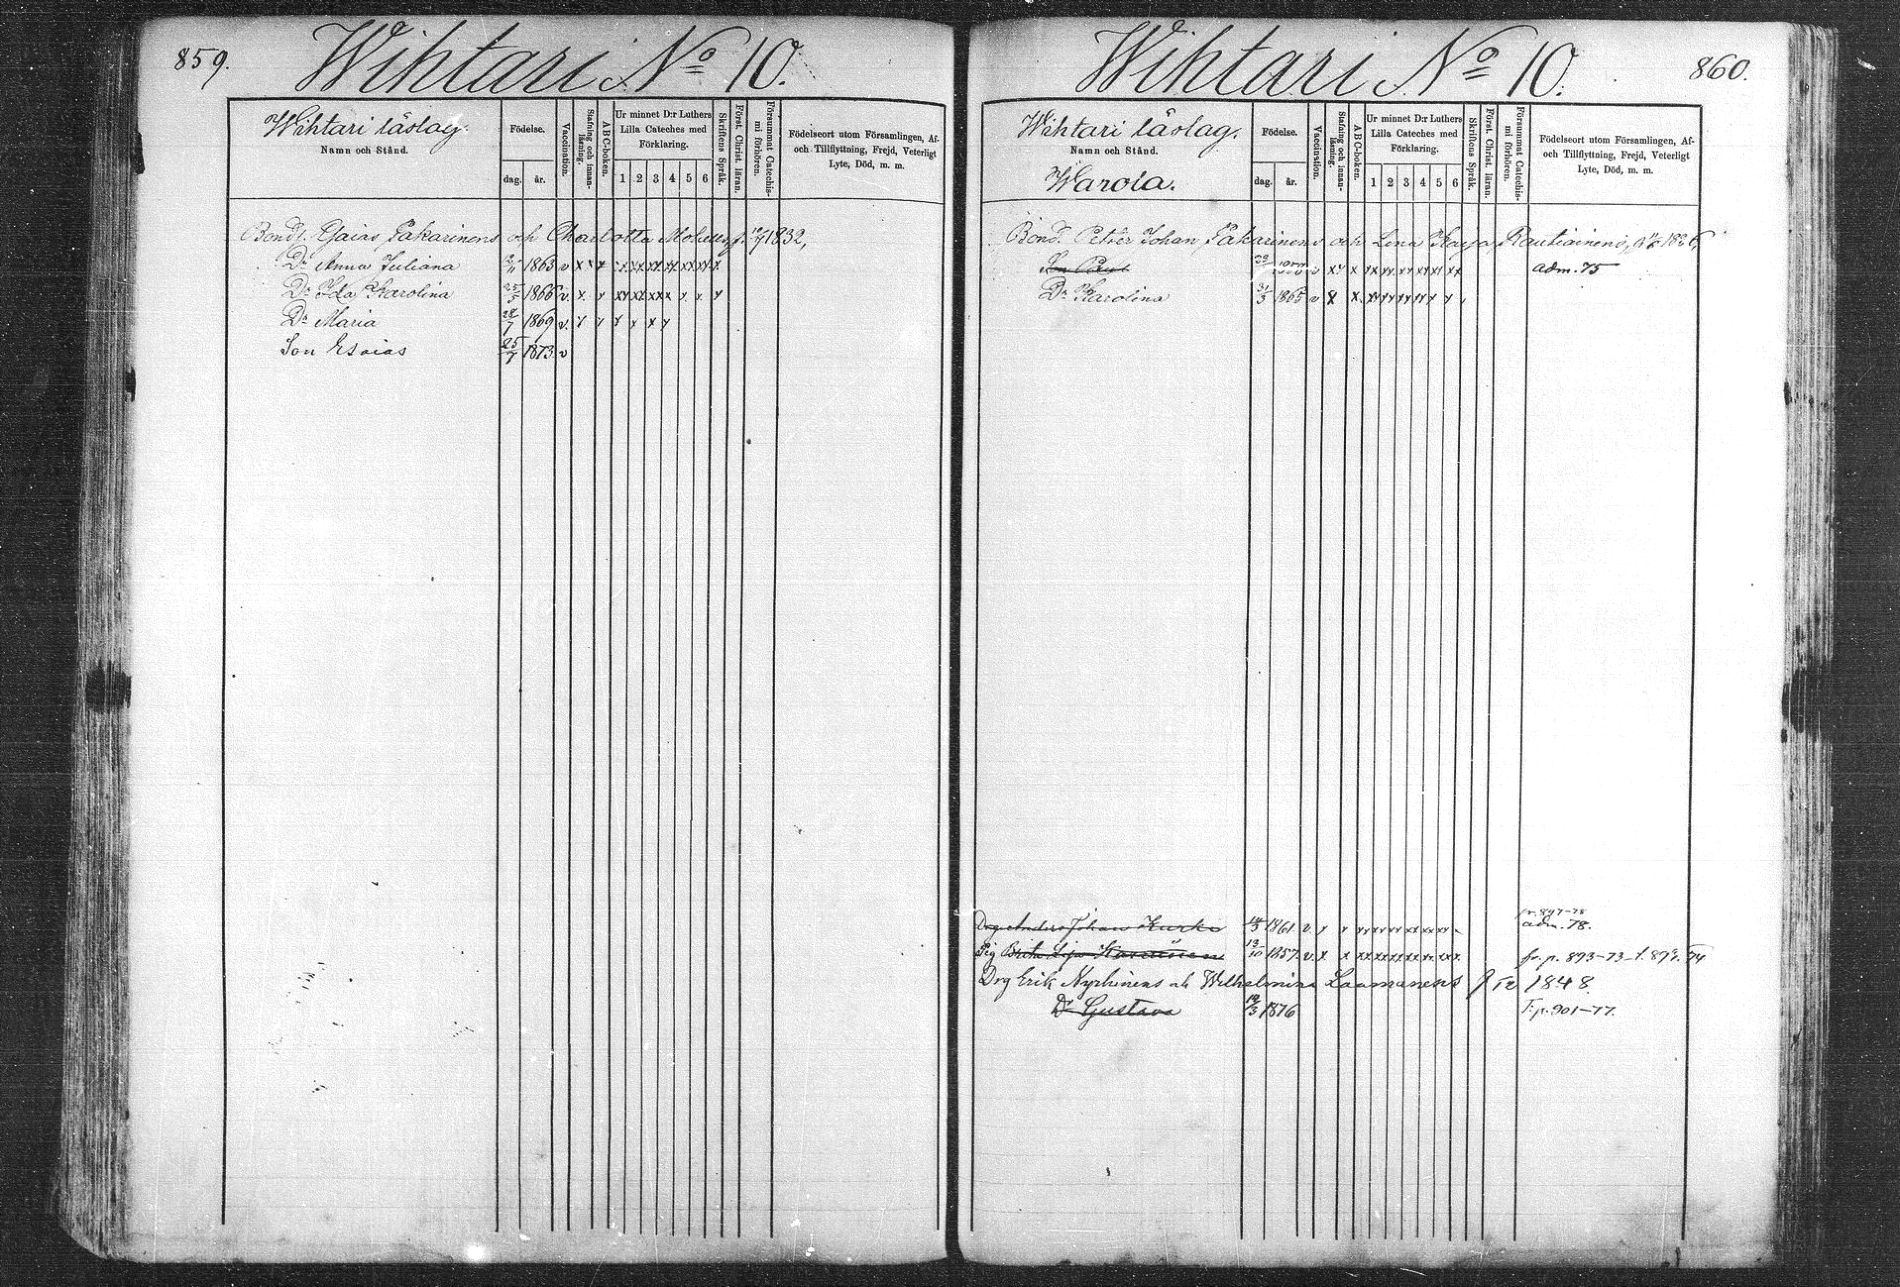 859.
Wihtari No 10.
Wihtari läslag.
Namn och Stånd.
Födelse.
dag. år.
Vaccination.
Stafning och innan-
läsning.
A B C-boken.
Ur minnet D:r Luthers
Lilla Cateches med
Förklaring.
1 2 3 4 5 6
Skriftens Språk.
Först. Christ. läran.
Försummat Catechis-
mi förhören.
Födelseort utom Församlingen, Af-
och Tillflyttning, Frejd, Veterligt
Lyte, Död, m. m.
Bond. Esaias Pakarinens och Charlotta 1832,
Dr Anna Juliana 1863 v x x x
Dr Ida Karolina 25/5 1866 v. x x
Dr Maria 28/7 1869 v.
Son Esaias 25/7 1873 v
860.
Wihtari No 10.
Wihtari läslag.
Namn och Stånd.
Warola.
Födelse.
dag. år.
Vaccination.
Stafning och innan-
läsning.
A B C-boken.
Ur minnet D:r Luthers
Lilla Cateches med
Förklaring.
1 2 3 4 5 6
Skriftens Språk.
Först. Christ. läran.
Försummat Catechis-
mi förhören.
Födelseort utom Församlingen, Af-
och Tillflyttning, Frejd, Veterligt
Lyte, Död, m. m.
Bond. Petter Johan Pakarinens och Lena Kaisa Rautiainens,
Son adm. 75
Dr Karolina 21/3 1865 v
fr. 897-78
Drg Anders Johan Kurki 1861 v. adm. 78.
Pig Brita Lisa 13/10 1857 v. x fr. p. 893-73
Drg Erik Nyrhinens ok Wilhelmina Laamanens 1848.
Dr Gustava 1876 F. p. 901-77.